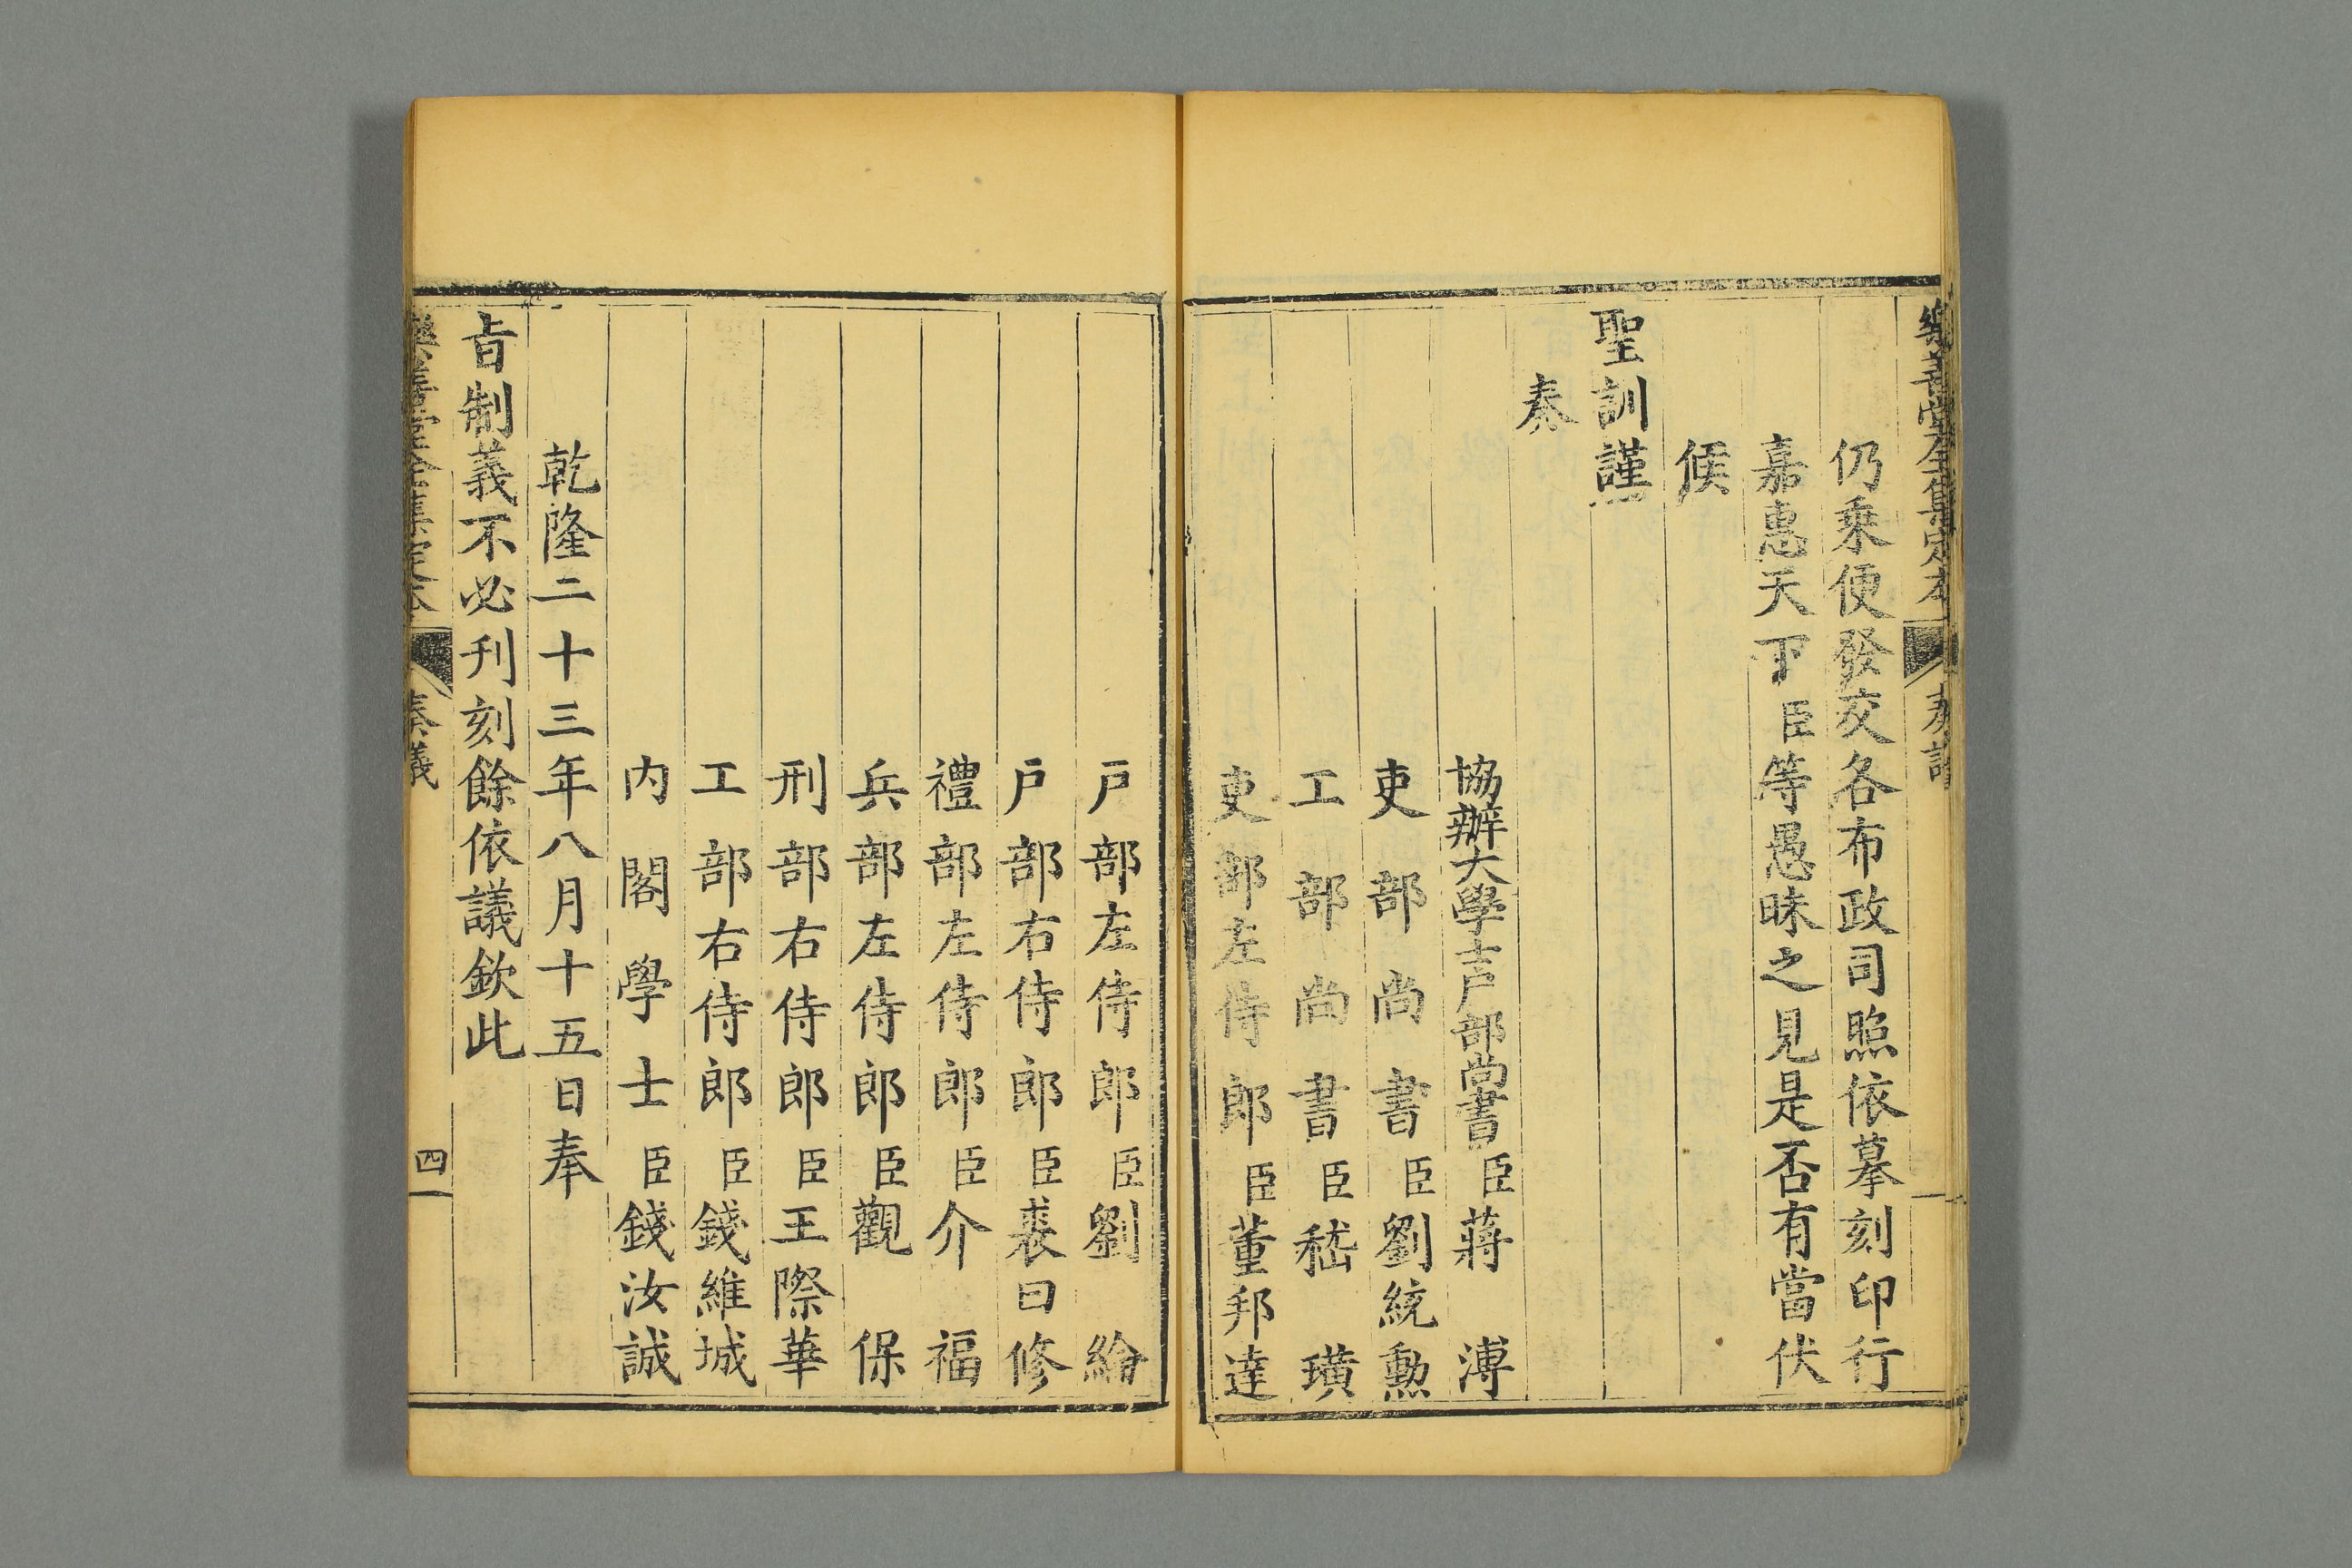 樂善堂全集定本
仍乘便發交各布政司照依摹刻印行
嘉惠天下臣等愚昧之見是否有當伏
候
聖訓謹
奏
協辦大學士户部尚書臣蔣溥
吏部尚書臣劉統勳
工部尚書臣嵇璜
吏部左侍郎臣董邦達
户部左侍郎臣劉綸
户部右侍郎臣裘曰修
禮部左侍郎臣介福
兵部左侍郎臣觀保
刑部右侍郎臣王際華
工部右侍郎臣錢維城
内閣學士臣錢汝誠
乾隆二十三年八月十五日奉
旨制義不必刊刻餘依議欽此
樂善堂全集定本 奏議 四